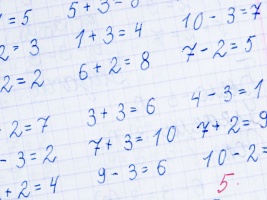 = 5 5 + 3 = 8 10 - 3 = 7
2 = 3 1 + 3 = 4 7 - 2 = 5
2 = 2 6 + 2 = 8
3 + 3 = 6 4 - 3 = 1
+ 2 = 7 7 + 3 = 10 7 + 2 = 9
- 3 = 2 9 - 3 = 6 10 - 2 =
+ 2 = 4 5.